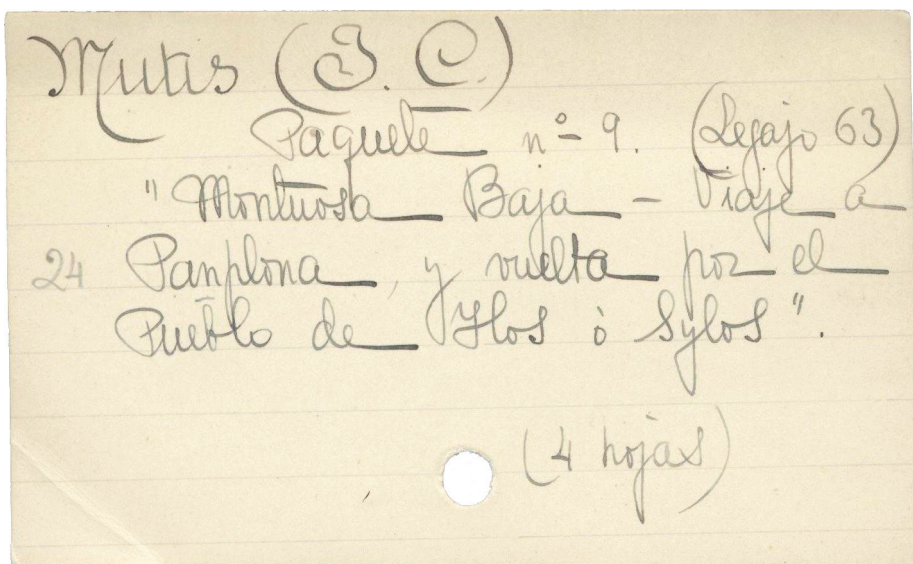 Mutis (J. C.)
Paquete nº 9. (Legajo 63)
"Montuosa Baja - Viaje a
24 Panplona, y vuelta por el
Pueblo de Ylos ò Sylos".
(4 hojas)